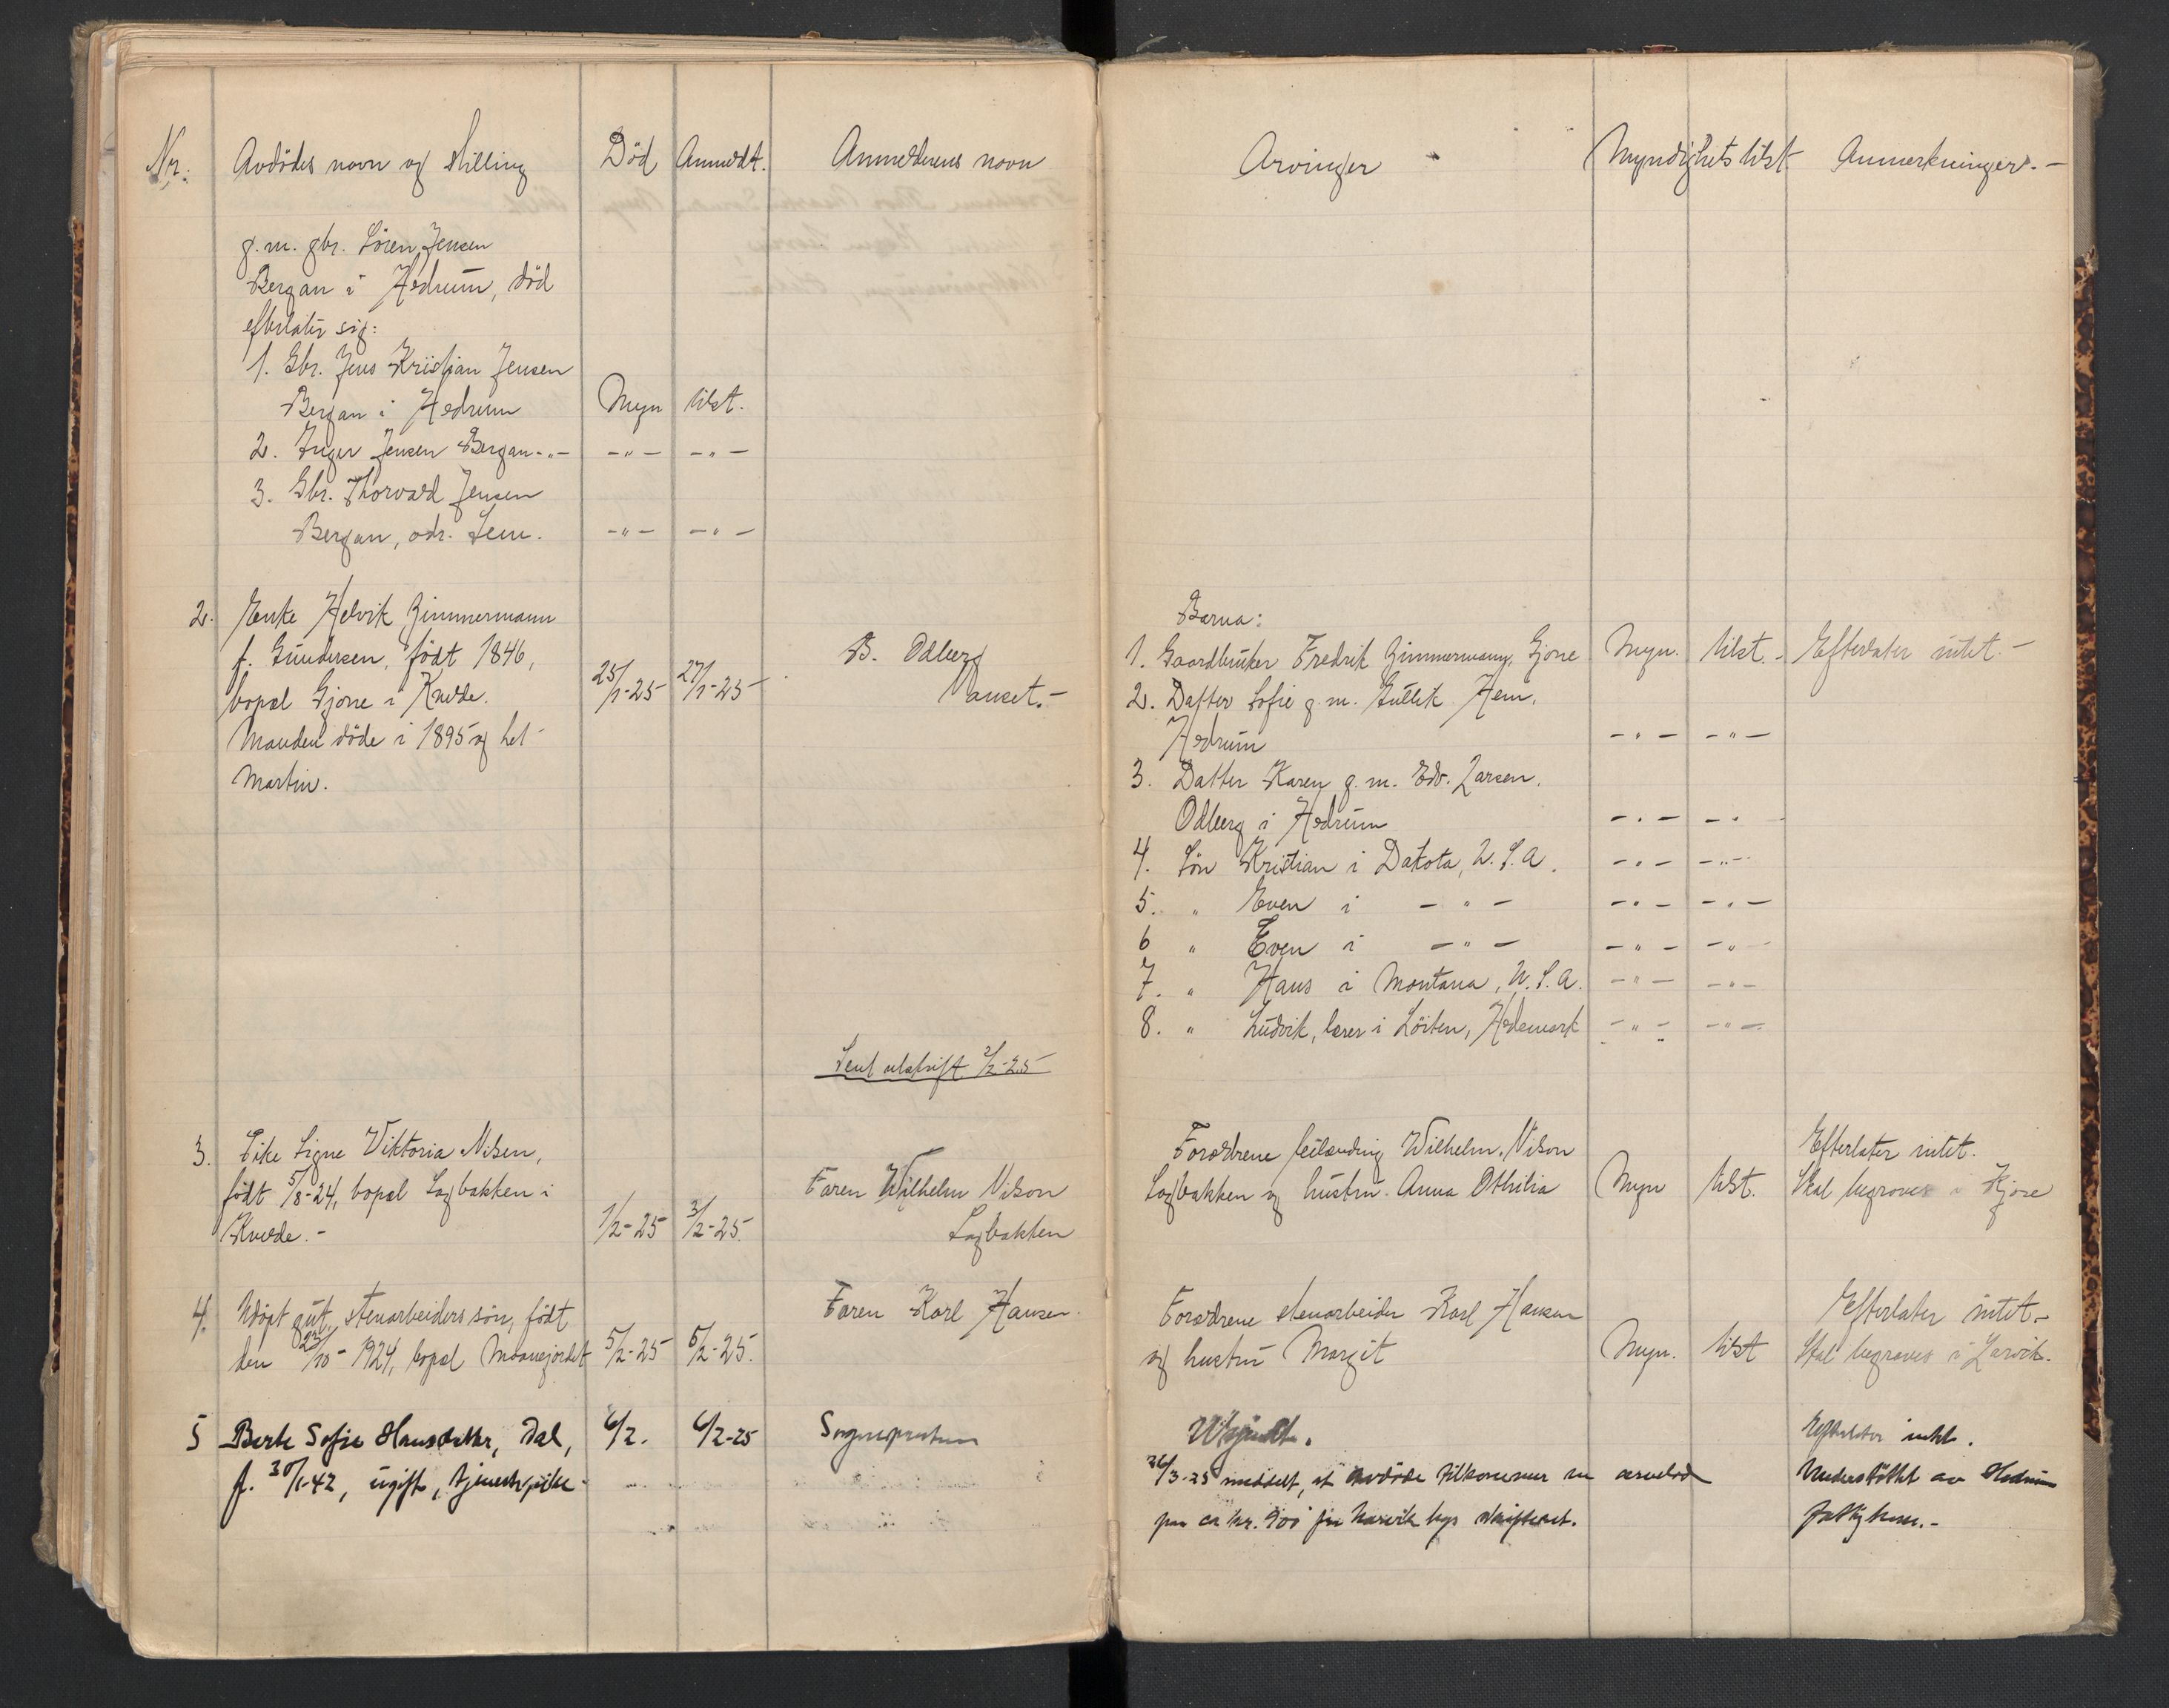 Nr. Avdödes navn og stilling Död Anmeldt. Anmelderens navn
g. m. gbr. Sören Jensen
Bergan i Hedrum, död
efterlater sig:
1. Gbr. Jens Kristian Jensen
Bergan i Hedrum Myn tilst.
2. Inger Jensen Bergan -"- -"- -"-
3. Gbr. Thorvald Jensen
Bergan, adr. Sem. -"- -"-
2. Enke Helvik Zimmermann
f. Gundersen, födt 1846,
bopæl Gjone i Kvelde. 25/1-25 27/1-25 B. Odberg
Manden döde i 1895 og het anset.-
Martin.
Sent utskrift 2/2-25
3. Pike Signe Viktoria Nilsen,
födt 5/8-24, bopæl Sagbakken i Faren Wilhelm Nilson
Kvelde.- 1/2-25 3/2-25. Sagbakken
4. Udöpt gut, stenarbeiders sön, födt Faren Karl Hansen.
den 23/10-1924, bopæl Moanejordet 5/2-25 6/2-25.
5 Berte Sofie Hansdatter, Dal, 6/2. 6/2-25 Sognepresten
f. 30/1-42, ugift, tjenestepike.
Arvinger Myndighets tilst. Anmerkninger.-
Barna:
1. Gaardbruker Fredrik Zimmermann, Gjone Myn. tilst.- Efterlater intet.-
2. Datter Sofie g. m. Gullik Hem,
Hedrum -"- -"-
3. Datter Karen g. m. Edv. Larsen.
Odberg i Hedrum -"- -"-
4. Sön Kristian i Dakota, U. S. A. -"- -"-
5. " Even i -"- -"- -"-
6 " Even i -"- -"- -"-
7. " Hans i Montana, U. S. A. -"- -"-
8. " Ludvik, lærer i Löiten, Hedemark -"- -"-
Forældrene Wilhelm Nilson Efterlater intet.
Sagbakken og hustru Anna Othilia Myn tilst. Skal begraves i Kjose
Forældrene stenarbeider Karl Hansen Efterlater intet.-
og hustru Margit Myn. tilst Skal begraves i Larvik.
Ubekjendt. Efterlater intet.
26/3-25 meddelt, at avdöde tilkommer en arvelod Understöttet av Hedrum
paa ca kr. 900 fra Narvik bys skifteret. fattigkasse.-